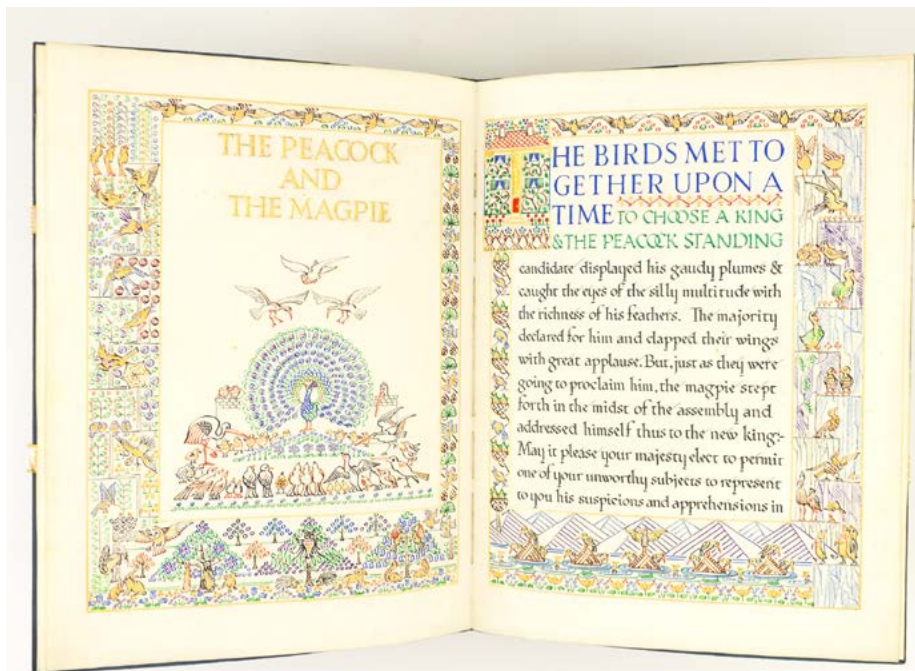 THE PEACOCK
AND
THE MAGPIE
THE BIRDS MET TO
GETHER UPON A
TIME TO CHOOSE A KING
& THE PEACOCK STANDING
candidate displayed his gaudy plumes &
caught the eyes of the silly multitude with
the richness of his feathers. The majority
declared for him and clapped their wings
with great applause. But, just as they were
going to proclaim him, the magpie stept
forth in the midst of the assembly and
addressed himself thus to the new king:-
May it please your majesty elect to permit
one of your unworthy subjects to represent
to you his suspicions and apprehensions in